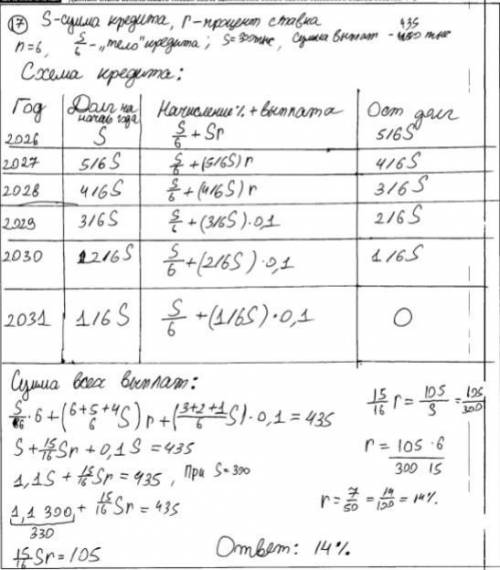 17 S-сумма кредита, r-процент ставка
n=6, S/6 - "тело" кредита; S=300тыс, сумма выплат - 435 тыс
Схема кредита:
Год | Долг на начало года | Начисление% + выплата | Ост долг
2026 | S | S/6 + Sr | 5/6S
2027 | 5/6S | S/6 + (5/6S) r | 4/6S
2028 | 4/6S | S/6 + (4/6S) r | 3/6S
2029 | 3/6S | S/6 + (3/6S)·0,1 | 2/6S
2030 | 2/6S | S/6 + (2/6S)·0,1 | 1/6S
2031 | 1/6S | S/6 + (1/6S)·0,1 | 0
Сумма всех выплат:
S/6·6 + (6+5+4/6 S) r + (3+2+1/6 S)·0,1 = 435
S + 15/16 Sr + 0,1S = 435
1,1S + 15/16 Sr = 435, При S=300
1,1 300 + 15/16 Sr = 435
330
15/16 Sr = 105
15/16 r = 105/S = 105/300
r = 105·6/300 15
r = 7/50 = 14/100 = 14%
Ответ: 14%